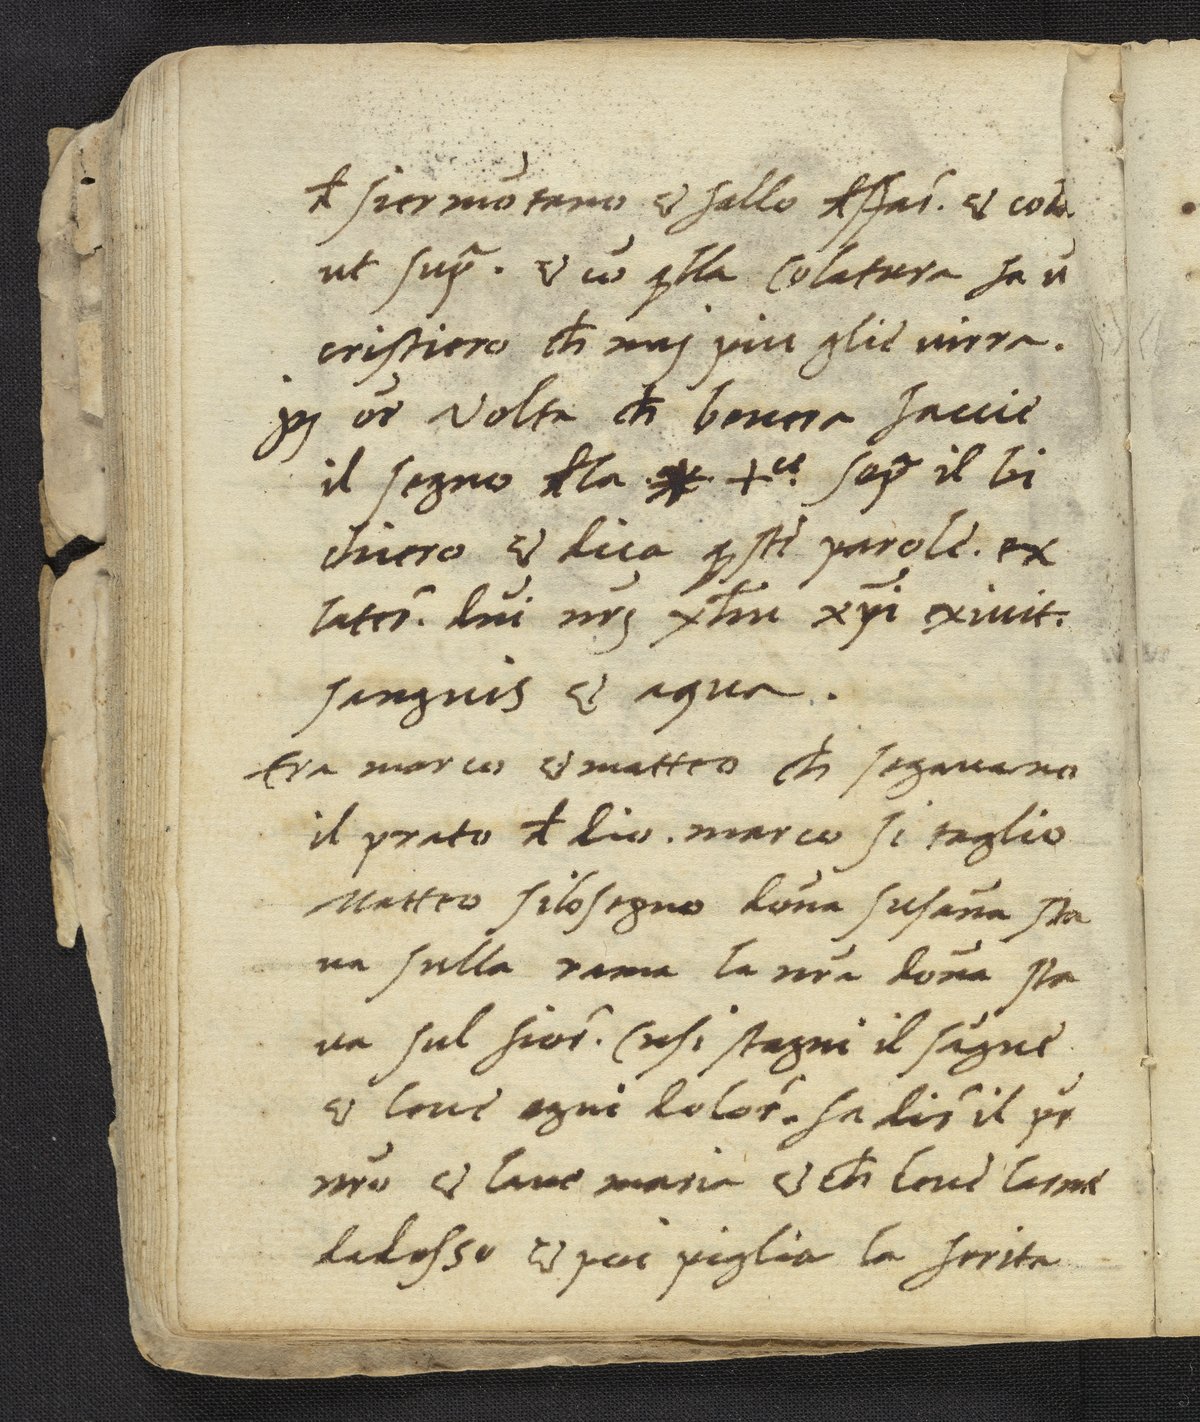 đ siermōtano & fallo đsfar̃. & cola
ut sup̃. & cō q̄lla colatura fa ū
cristiero cħ maj piu glie uirra.
on̄e Volta cħ beuera faccie
il segno đla + sop̃ il bi
chiero & dica q̄ste parole. ex
later̃. dn̄i nr̄j xp̄i exiuit.
sanguis & aqua.
Era marco & matteo cħ segauano
il prato đ dio. marco si taglio
Matteo silosegno don̄a susan̄a sta
ua sulla rama la nr̄a don̄a sta
ua sul fior̃. Cusi stagni il sāgue
& leue ogni dolor̃. fa dir̃ il pr̄
nr̄o & laue maria & cħ leue larme
dadosso & poi piglia la ferita